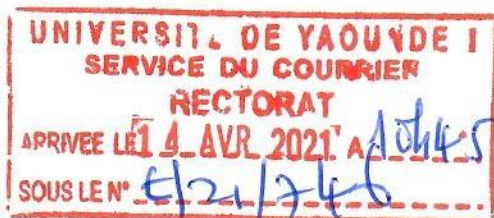 UNIVERSITE DE YAOUNDE I
SERVICE DU COURRIER
RECTORAT
ARRIVEE LE 14 AVR. 2021 A 10h45
SOUS LE N° E/21/746